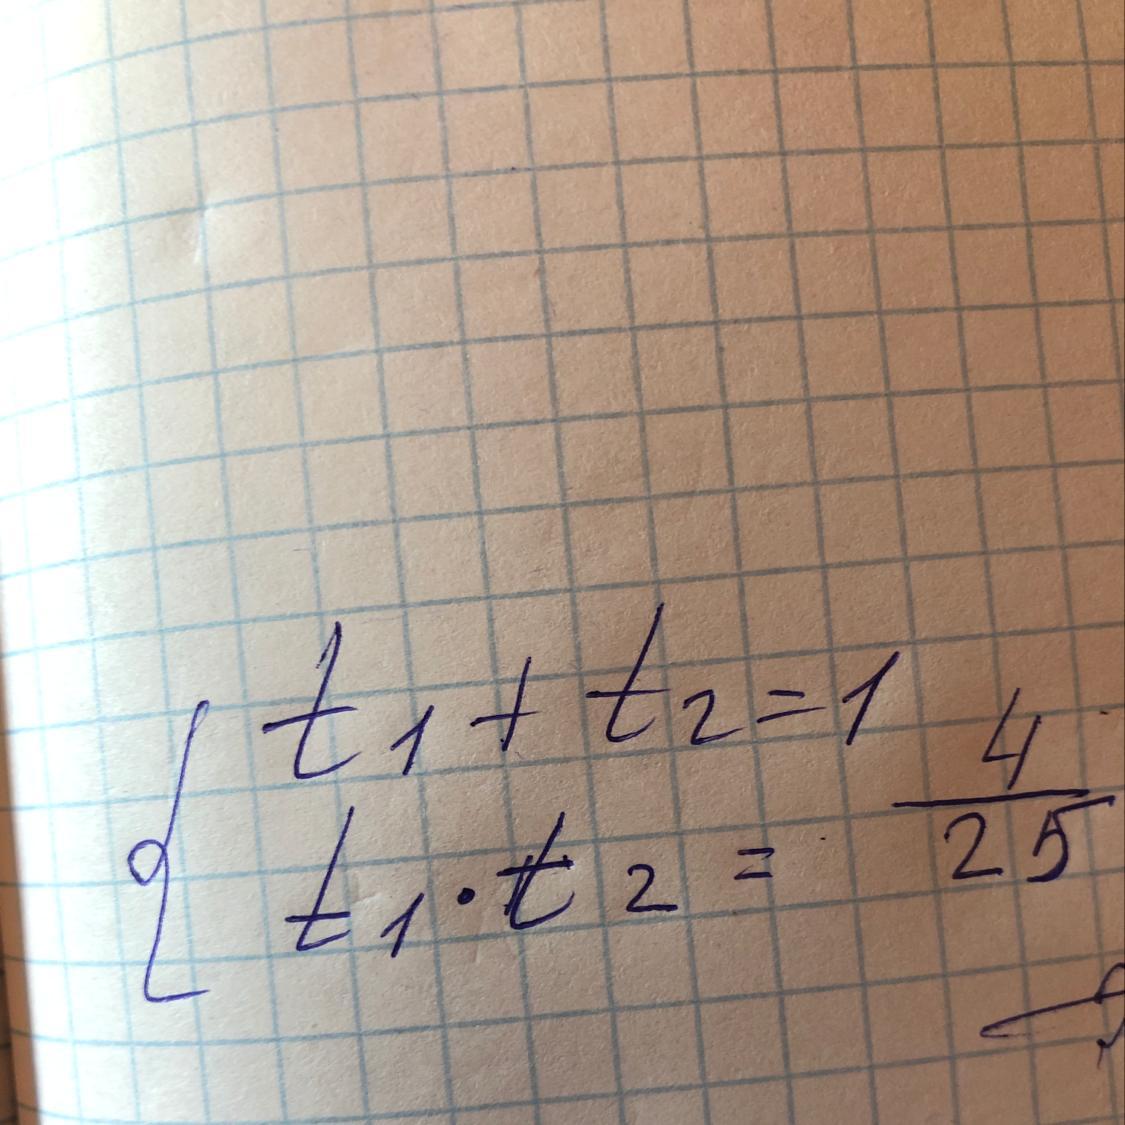 t₁ + t₂ = 1
t₁ · t₂ = 4/25